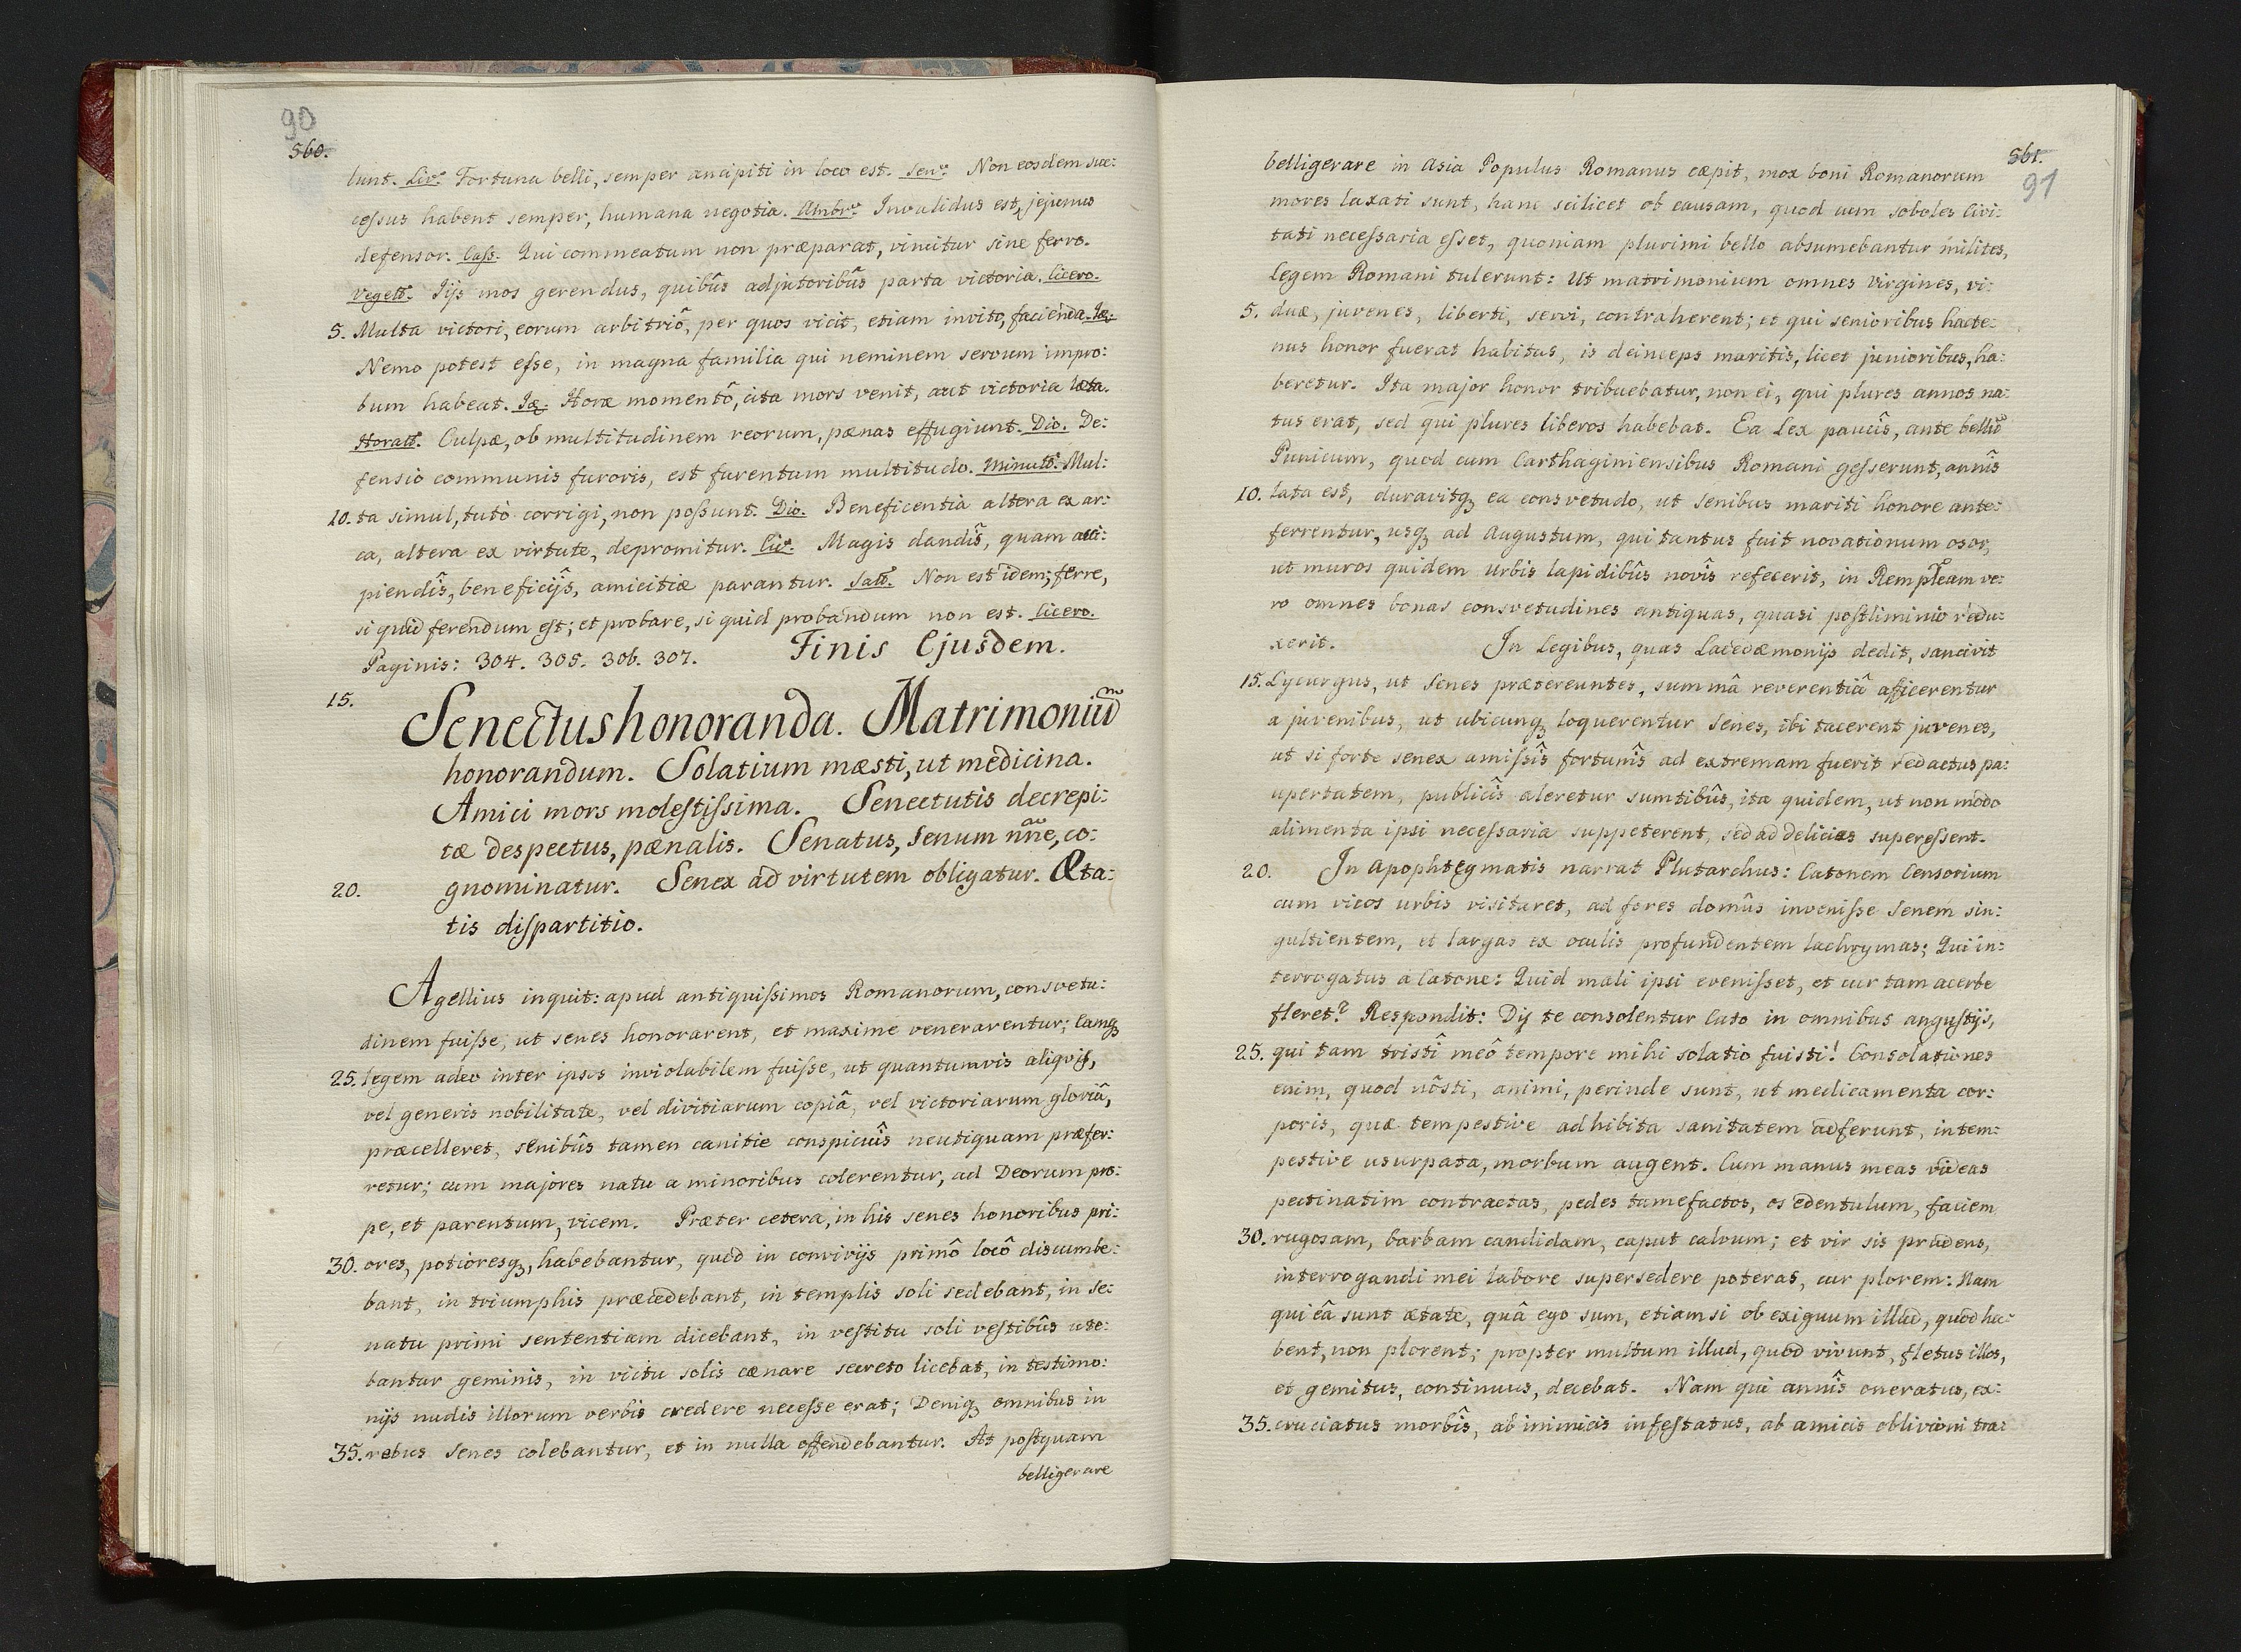 90
560.
lunt. Livꝰ. Fortuna belli, semper ancipiti in loco est. Senꝰ. Non eosdem suc:
cessus habent semper, humana negotia. Ambrꝰ. Invalidus est, jejunus
defensor. Cass. Qui commeatum non præparat, vincitur sine ferro.
Veget. Ijs mos gerendus, quibûs adjutoribûs parta victoria. Cicero.
5. Multa victori, eorum arbitriô, per quos vicit, etiam invito, facienda. Iđ.
Nemo potest esse, in magna familia qui neminem servum impro:
bum habeat. Iđ. Horæ momentô, cita mors venit, aut victoria læta.
Horat. Culpæ, ob multitudinem reorum, pænas effugiunt. Dio. De:
fensio communis furoris, est furentum multitudo. Minut. Mul:
10. ta simul, tutò corrigi, non possunt. Dio. Beneficentia altera ex ar:
ca, altera ex virtute, depromitur. Cic. Magis dandîs, quam acci:
piendîs, beneficijs, amicitiæ parantur. Sall. Non est idem; ferre,
si quid ferendum est; et probare, si quid probandum non est. Cicero.
Paginis: 304. 305. 306. 307. Finis Ejusdem.
15.
Senectus honoranda. Matrimoniū
honorandum. Solatium mæsti, ut medicina.
Amici mors molestissima. Senectutis decrepi:
tæ despectus, pænalis. Senatus, Senum nn̄e, co:
20. gnominatur. Senex ad virtutem obligatur. Æta:
tis dispartitio.
Agellius inquit: apud antiquissimos Romanorum, consvetu:
dinem fuisse, ut senes honorarent, et maxime venerarentur; Eamq̨
25. legem adeo inter ipsos inviolabilem fuisse, ut quantumvis aliquis,
vel generis nobilitate, vel divitiarum copiâ, vel victoriarum gloriâ,
præcelleret, senibûs tamen canitie conspicuîs neutiquam præfer:
retur; cum majores natu a minoribus colerentur, ad Deorum pro:
pe, et parentum, vicem. Præter cetera, in his senes honoribus pri:
30. ores, potioresq̨, habebantur, quod in convivijs primô locô discumbe:
bant, in triumphis præcedebant, in templis soli sedebant, in se:
natu primi sententiam dicebant, in vestitu soli vestibûs ute:
bantur geminis, in victu solis cænare secreto licebat, in testimo:
nijs nudis illorum verbis credere necesse erat; Deniq̨ omnibus in
35. rebus senes colebantur, et in nulla offendebantur. At postquam
belligerare
561.
91
belligerare in Asia Populus Romanus cæpit, mox boni Romanorum
mores laxati sunt, hanc scilicet ob causam, quod cum soboles Civi:
tati necessaria esset, quoniam plurimi bello absumebantur milites,
Legem Romani tulerunt: Ut matrimonium omnes Virgines, vi:
5. duæ, juvenes, liberti, servi, contraherent; et qui senioribus hacte:
nus honor fuerat habitus, is deinceps maritis, licet junioribus, ha:
beretur. Ita major honor tribuebatur, non ei, qui plures annos na:
tus erat, sed qui plures liberos habebat. Ea Lex paucîs, ante bellū
Punicum, quod cum Carthaginiensibus Romani gesserunt, annîs
10. lata est, duravitq̨ ea consvetudo, ut senibus mariti honore ante:
ferrentur, usq̨ ad Augustum, qui tantus fuit novationum osor,
ut muros quidem Urbis lapidibûs novîs refecerit, in Rempłcam ve:
ro omnes bonas consvetudines antiquas, quasi postliminio redu:
xerit. In Legibus, quas Lacedæmonijs dedit, sancivit
15. Lycurgus, ut Senes prætereuntes, summâ reverentiâ afficerentur
a juvenibus, ut ubicunq̨ loquerentur Senes, ibi tacerent juvenes,
ut si forte senex amissîs fortunîs ad extremam fuerit redactus pa:
upertatem, publicîs aleretur sumtibûs, ita quidem, ut non modo
alimenta ipsi necessaria suppeterent, sed ad delicias superessent.
20. In Apophtegmatis narrat Plutarchus: Catonem Censorium
cum vicos urbis visitaret, ad fores domûs invenisse Senem sin:
gultientem, et largas ex oculis profundentem lachrymas; Qui in:
terrogatus a Catone: Quid mali ipsi evenisset, et cur tam acerbe
fleret? Respondit: Dij te consolentur Cato in omnibus angustijs,
25. qui tam tristî meô tempore mihi solatio fuisti! Consolationes
enim, quod nôsti, animi, perinde sunt, ut medicamenta cor:
poris, quæ tempestive adhibita sanitatem adferunt, intem:
pestive usurpata, morbum augent. Cum manus meas videas
pectinatim contractas, pedes tumefactos, os edentulum, faciem
30. rugosam, barbam candidam, caput calvum; et vir sis prudens,
interrogandi mei labore supersedere poteras, cur plorem: Nam
qui eâ sunt ætate, quâ ego sum, etiamsi ob exiguum illud, quod ha:
bent, non plorent; propter multum illud, quod vivunt, fletus illos,
et gemitus, continuus, decebat. Nam qui annîs oneratus, ex:
35. cruciatus morbîs, ab inimicis infestatus, ab amicis oblivioni tra: